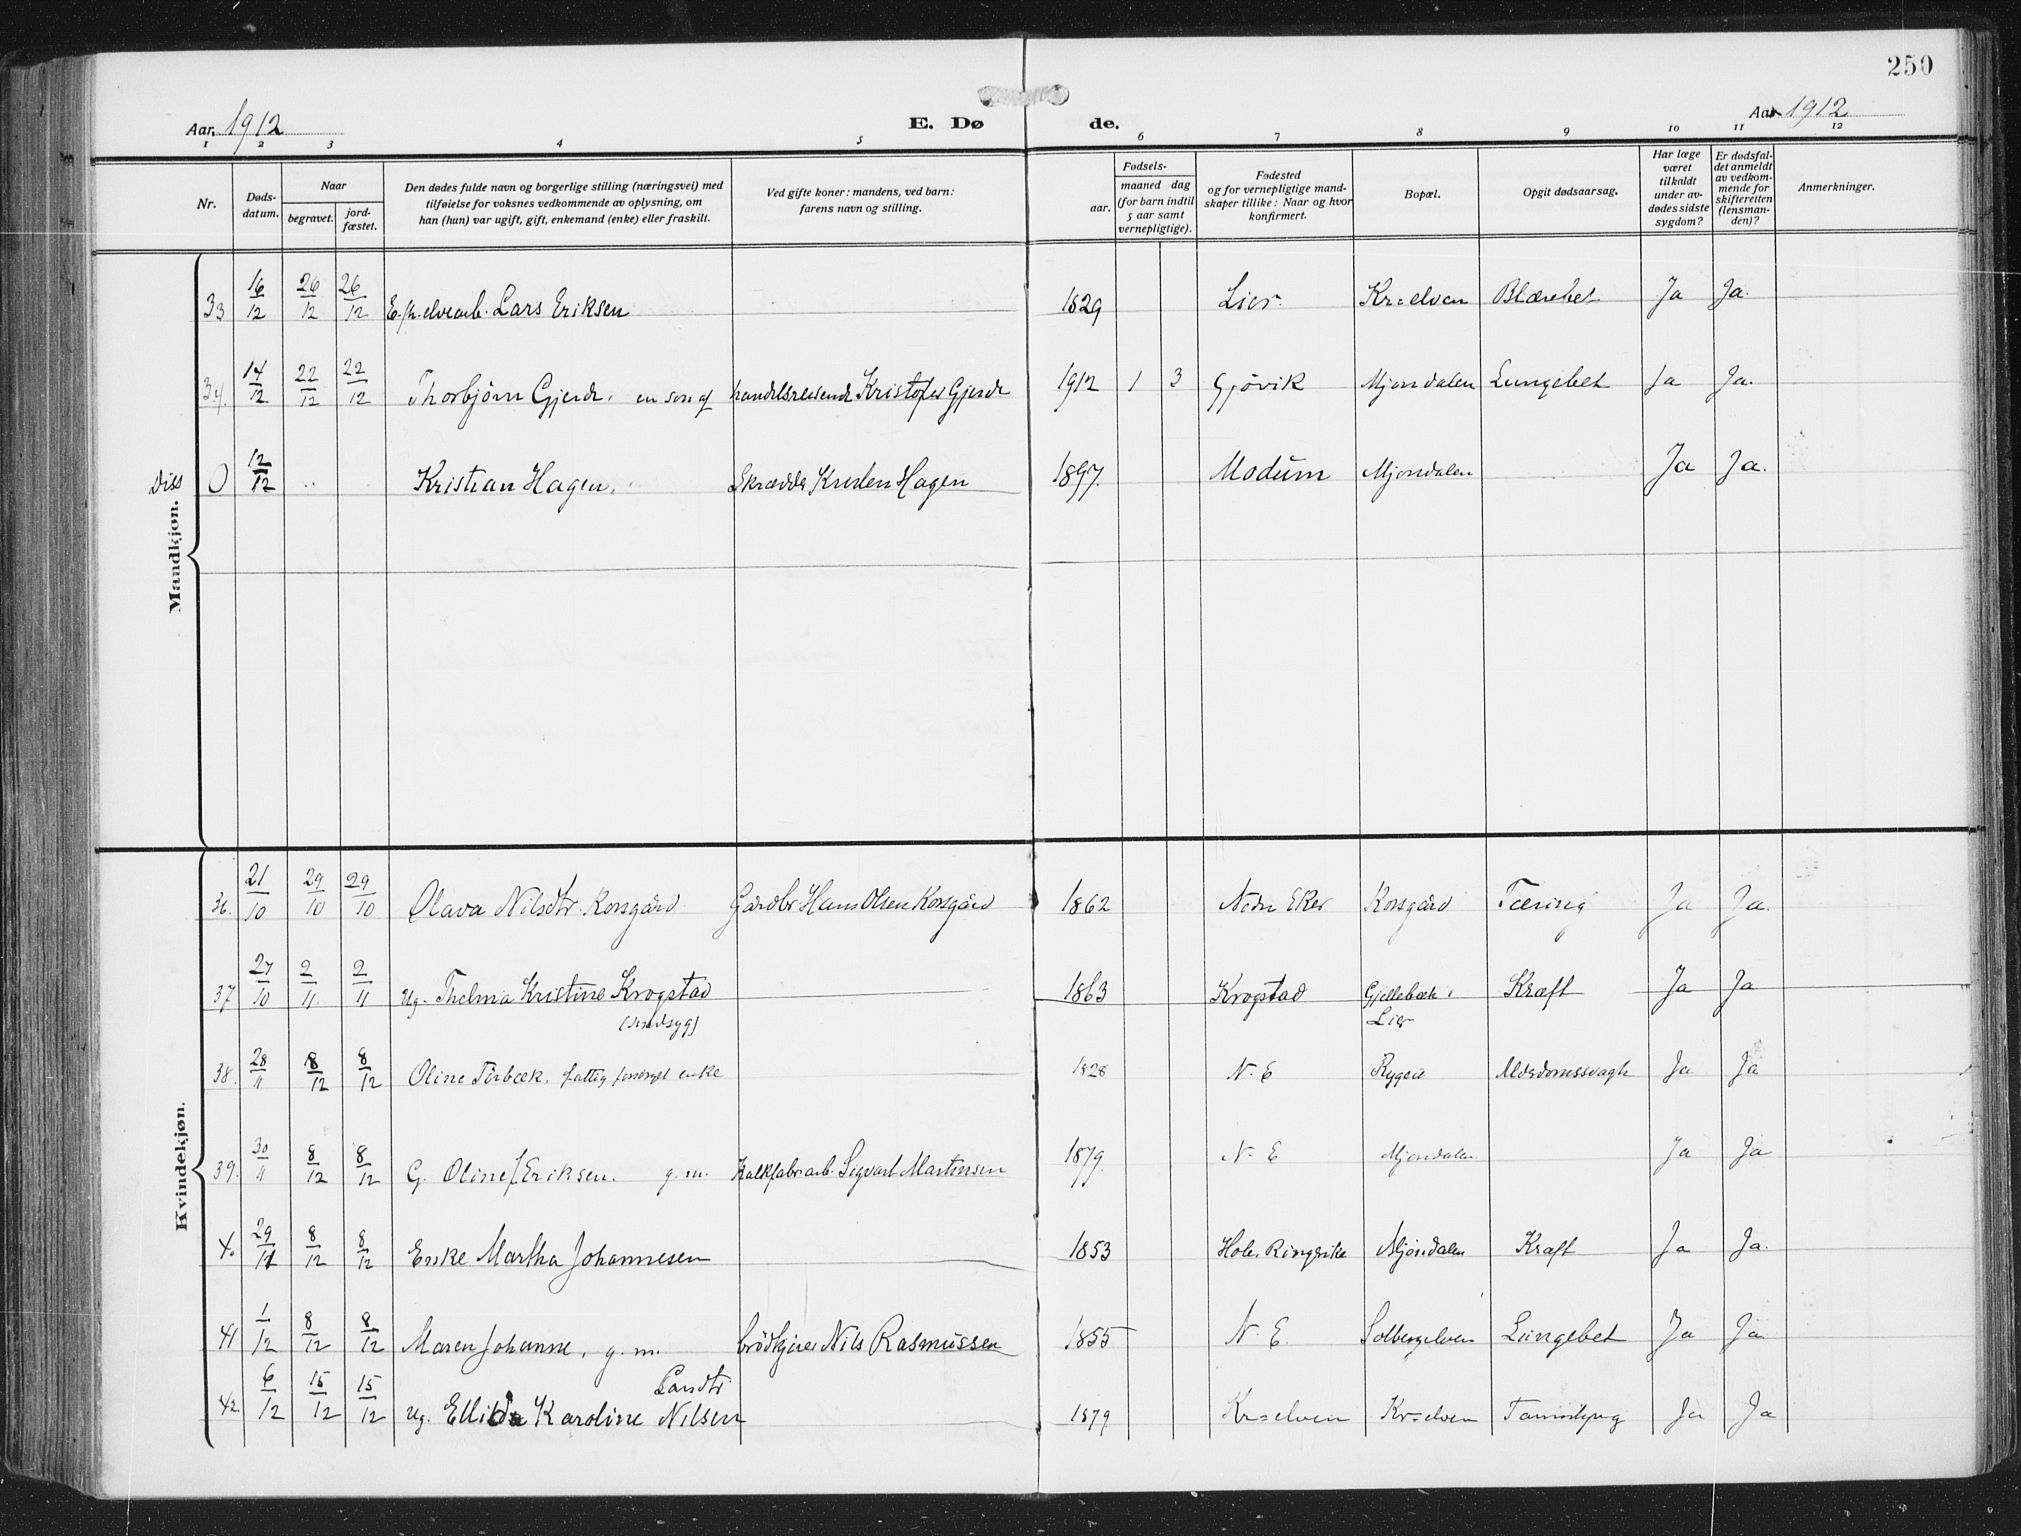 250
Aar. 1912
E. Dø
de.
Aar 1912
1 2 3 4 5 6 7 8 9 10 11 12
Nr.
Døds-
datum.
Naar
begravet.
jord-
fæstet.
Den dødes fulde navn og borgerlige stilling (næringsvei) med
tilføielse for voksnes vedkommende av oplysning, om
han (hun) var ugift, gift, enkemand (enke) eller fraskilt.
Ved gifte koner: mandens, ved barn:
farens navn og stilling.
Fødsels-
aar.
maaned dag
(for barn indtil
5 aar samt
vernepligtige).
Fødested
og for vernepligtige mand-
skaper tillike: Naar og hvor
konfirmert.
Bopæl.
Opgit dødsaarsag.
Har læge
været
tilkaldt
under av-
dødes sidste
sygdom?
Er dødsfal-
det anmeldt
av vedkom-
mende for
skifteretten
(lensman-
den)?
Anmerkninger.
Mandkjøn.
33 16/12 26/12 26/12 E.m. elvearb. Lars Eriksen 1829 Lier. Kr=elven Blærebet Ja Ja.
34. 14/12 22/12 22/12 Thorbjørn Gjerde, en søn af handelsreisende Kristofer Gjerde 1912 1 3 Gjøvik Mjøndalen Lungebet Ja Ja.
Diss 0 12/12 Kristian Hagen. Skrædder Hagen 1897 Modum Mjøndalen Ja Ja.
Kvindekjøn.
36. 21/10 29/10 29/10 Olava Nilsdtr. Korsgård Gårdbr Hans Olsen Korsgård 1862 Nedre Eker Korsgård Tæring Ja Ja.
37 27/10 2/11 2/11 Ug. Thelma Kristine Krogstad 1863 Krogstad Gjellebæk i Kræft Ja Ja
(sindsyg) Lier
38. 28/11 8/12 8/12 Oline fattig forsørget enke 1828 N. E Alderdomssvagh Ja Ja
39. 30/11 8/12 8/12 G. Oline f Eriksen. g.m. Kalkfabr arb. Sigvart Martinsen 1879. N. E Mjøndalen Ja Ja
40 29/11 8/12 8/12 Enke Martha Johannesen 1853 Hole, Ringerike Mjøndalen Kræft Ja Ja.
41 1/12 8/12 8/12 Maren Johanne, g.m. brødkjører Nils Rasmussen 1855 N. E. Solbergelven Lungebet Ja Ja
42. 6/12 15/12 15/12 Ug. Ellida Karoline Nilsen 1879 Kr=elven Kr=elven Ja Ja